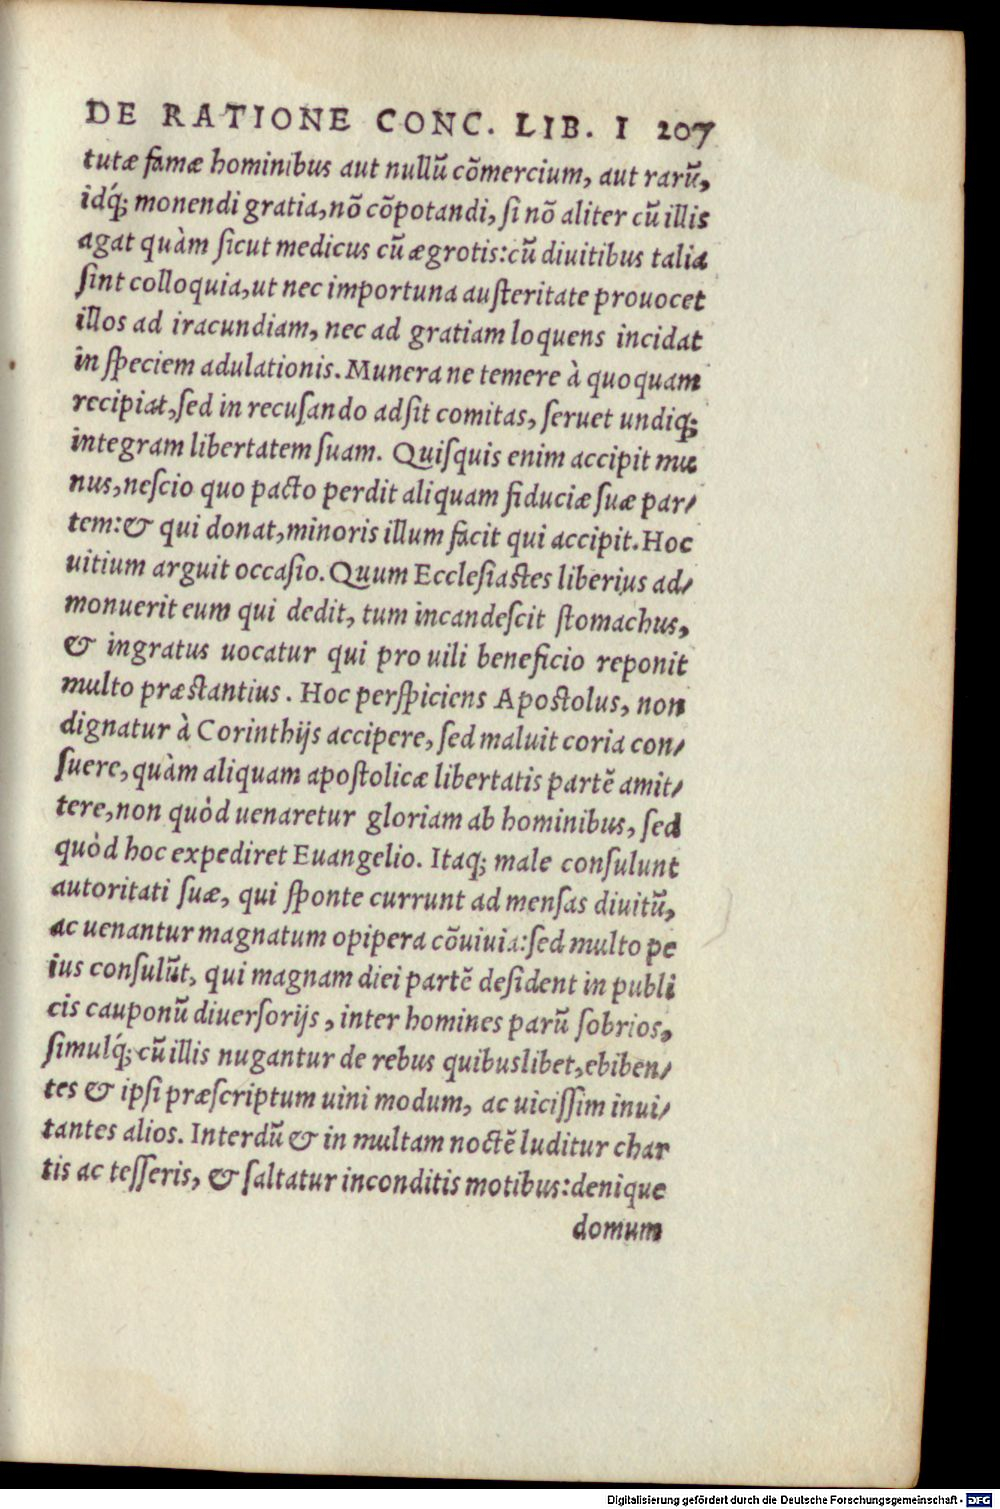 DE RATIONE CONC. LIB. I 207
tutæ famæ hominibus aut nullũ cõmercium, aut rarũ,
idq́; monendi gratia, nõ cõpotandi, ſi nõ aliter cũ illis
agat quàm ſicut medicus cũ ægrotis: cũ diuitibus talia
ſint colloquia, ut nec importuna auſteritate prouocet
illos ad iracundiam, nec ad gratiam loquens incidat
in ſpeciem adulationis. Munera ne temere à quoquam
recipiat, ſed in recuſando adſit comitas, ſeruet undiq;
integram libertatem ſuam. Quiſquis enim accipit mu
nus, neſcio quo pacto perdit aliquam fiduciæ ſuæ par/
tem: & qui donat, minoris illum facit qui accipit. Hoc
uitium arguit occaſio. Quum Eccleſiaſtes liberius ad/
monuerit eum qui dedit, tum incandeſcit ſtomachus,
& ingratus uocatur qui pro uili beneficio reponit
multo præſtantius. Hoc perſpiciens Apoſtolus, non
dignatur à Corinthijs accipere, ſed maluit coria con/
ſuere, quàm aliquam apoſtolicæ libertatis partẽ amit/
tere, non quòd uenaretur gloriam ab hominibus, ſed
quòd hoc expediret Euangelio. Itaq; male conſulunt
autoritati ſuæ, qui ſponte currunt ad menſas diuitũ,
ac uenantur magnatum opipera cõuiuia: ſed multo pe
ius conſulũt, qui magnam diei partẽ deſident in publi
cis cauponũ diuerſorijs, inter homines parũ ſobrios,
ſimulq́; cũ illis nugantur de rebus quibuslibet, ebiben/
tes & ipſi præſcriptum uini modum, ac uiciſſim inui/
tantes alios. Interdũ & in multam noctẽ luditur char
tis ac teſſeris, & ſaltatur inconditis motibus: denique
domum
Digitalisierung gefördert durch die Deutsche Forschungsgemeinschaft - DFG